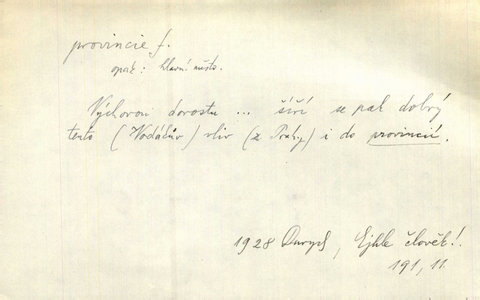 provincie f.
opak: hlavní město.
Výchovou dorostu ... šíří se pak dobrý
tento (Vodákův) vliv (z Prahy) i do provincií.
1928 Durych, Ejhle člověk!.
191, 11.